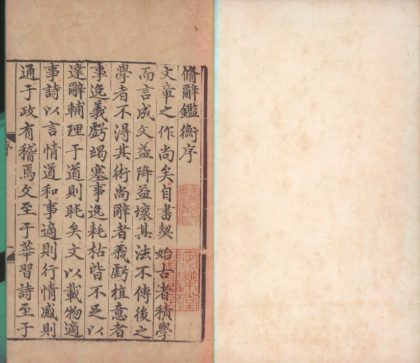 脩辭鑑衡序
文章之作尚矣自書契始古者積學
而言成文益降益壞其法不傳後之
學者不得其術尚辭者義虧植意者
事逸義虧竭塞事逸耗枯皆不足以
達辭輔理于道則眊矣文以載物適
事詩以言情道和事適則行情感則
通于政有稽焉文至于華習詩至于
序